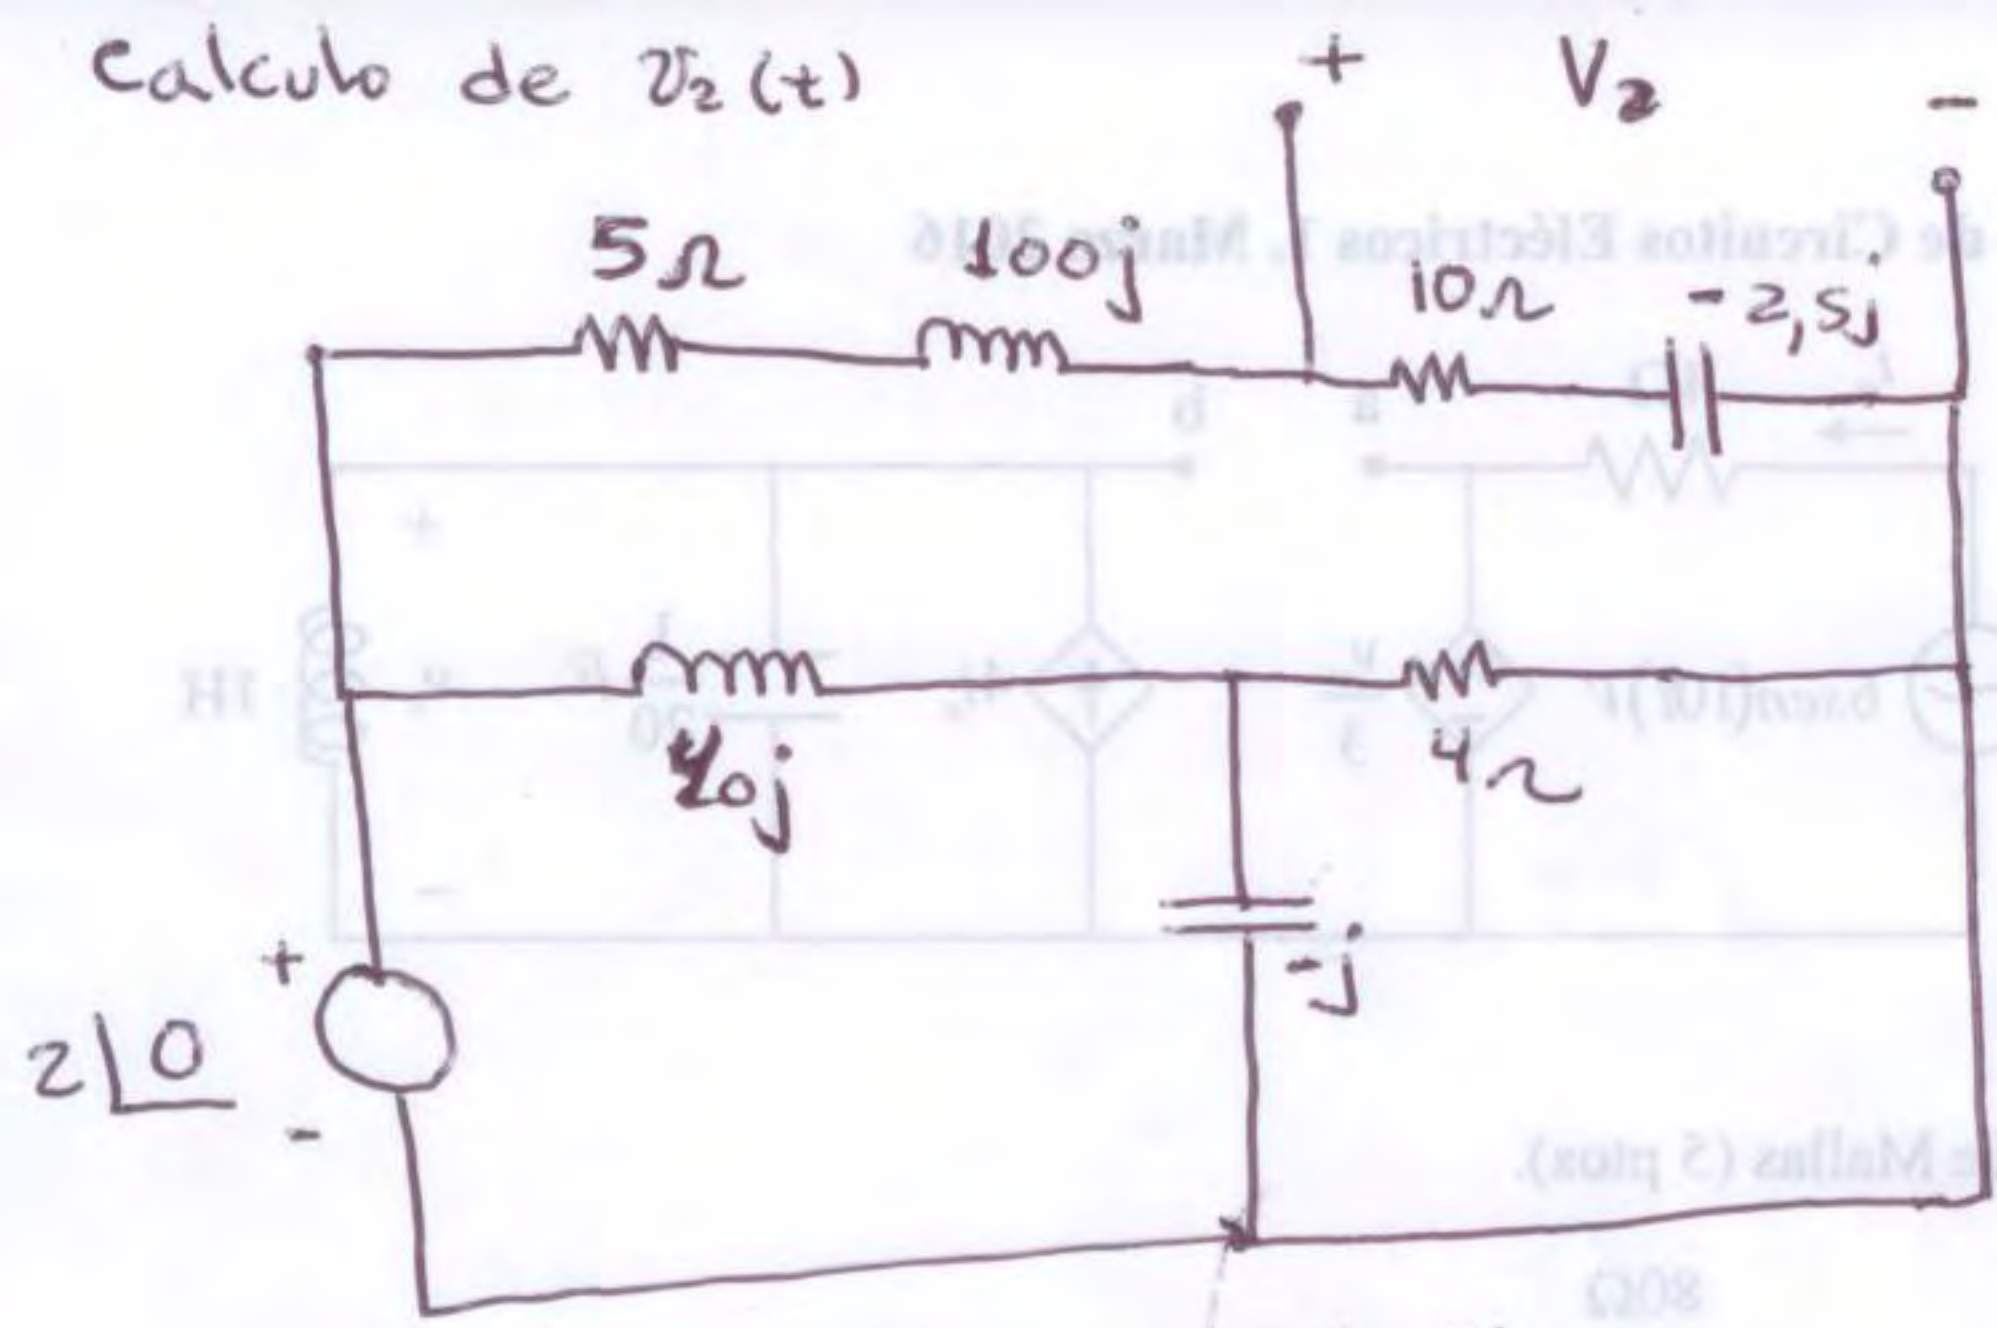 Calculo de v₂(t)
+ V₂ -
5Ω 100j 10Ω -2,5j
4Ω
+ -j
2∠0
-